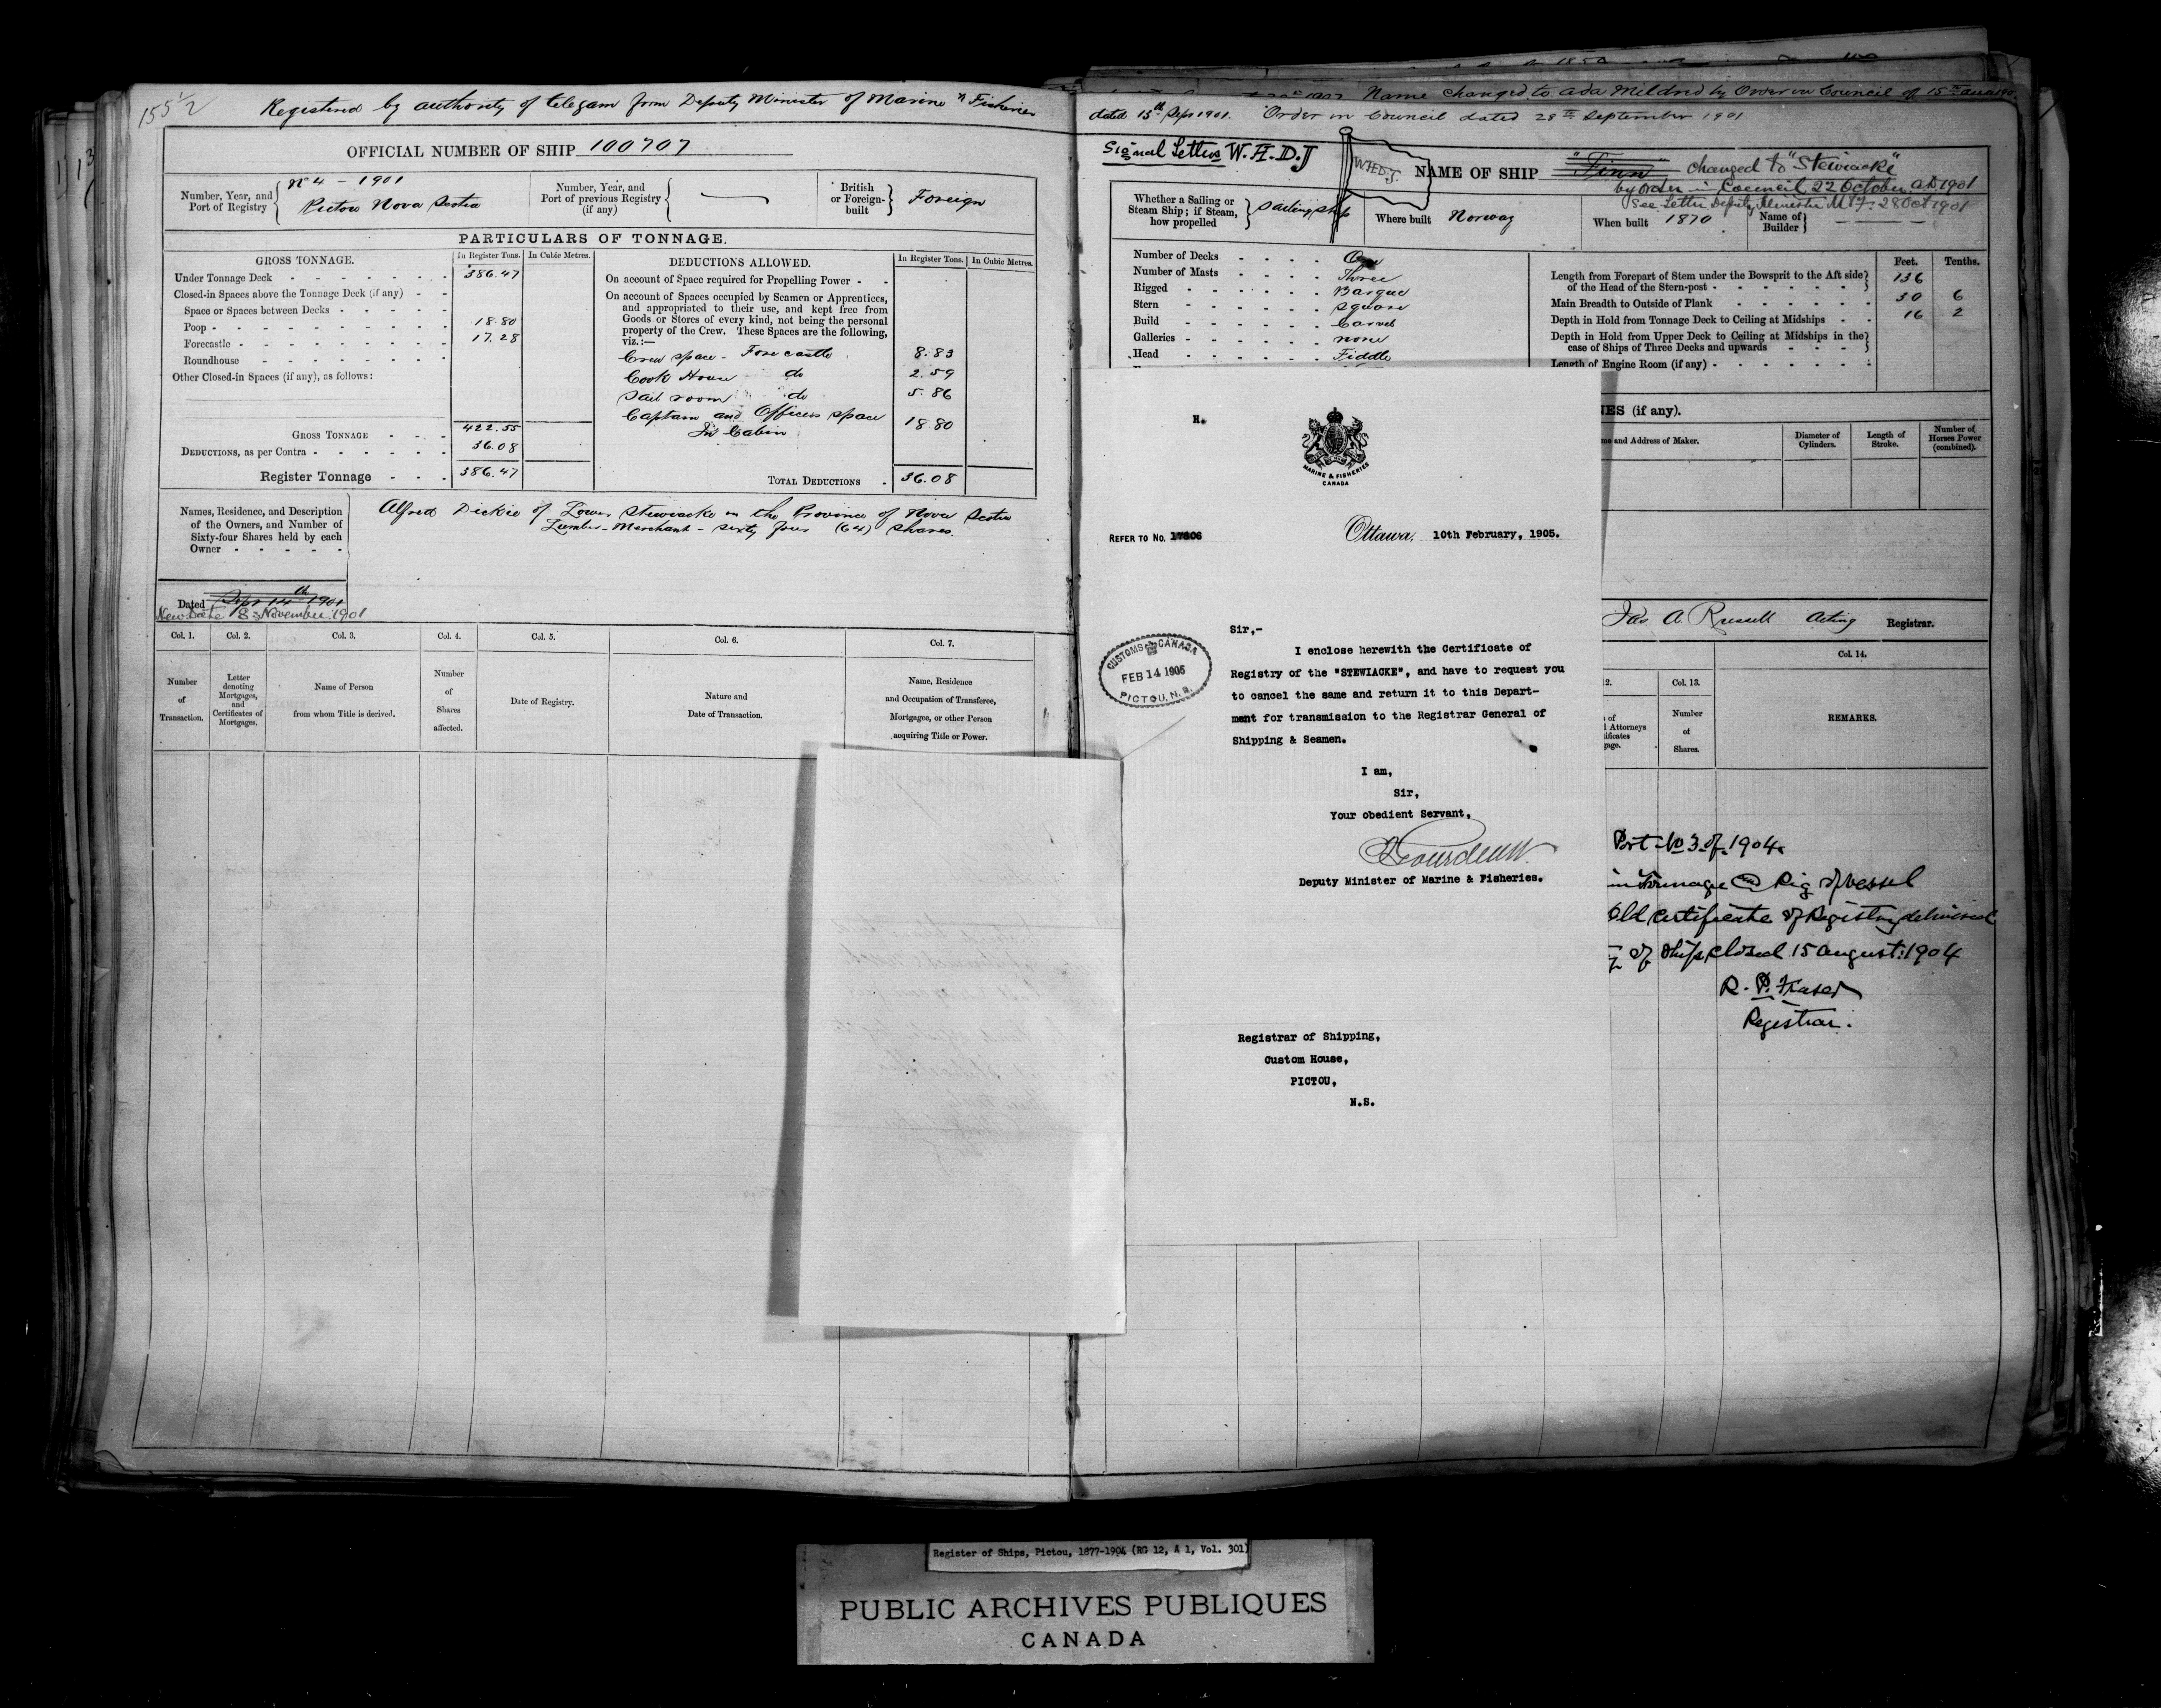 155 1/2
Registered by authority of telegam from Deputy Minister of Marine & Fisheries
OFFICIAL NUMBER OF SHIP 100707
Number, Year, and Port of Registry
No 4 - 1901
Pictou Nova Scotia
Number, Year, and Port of previous Registry (if any)
British or Foreign-built
Foreign
PARTICULARS OF TONNAGE.
GROSS TONNAGE.
In Register Tons.
In Cubic Metres.
Under Tonnage Deck 386.47
Closed-in Spaces above the Tonnage Deck (if any)
Space or Spaces between Decks
Poop 18.80
Forecastle 17.28
Roundhouse
Other Closed-in Spaces (if any), as follows:
GROSS TONNAGE 422.55
DEDUCTIONS, as per Contra 36.08
Register Tonnage 386.47
DEDUCTIONS ALLOWED.
In Register Tons.
In Cubic Metres.
On account of Space required for Propelling Power
On account of Spaces occupied by Seamen or Apprentices,
and appropriated to their use, and kept free from
Goods or Stores of every kind, not being the personal
property of the Crew. These Spaces are the following,
viz.:—
Crew space - Forecastle 8.83
Cook House do 2.59
Sail room do 5.86
Captain and Officers space
In Cabin 18.80
TOTAL DEDUCTIONS 36.08
Names, Residence, and Description
of the Owners, and Number of
Sixty-four Shares held by each
Owner
Alfred Dickie of Lower Stewiacke in the Province of Nova Scotia
Lumber-Merchant - sixty four (64) shares.
Dated Sept 14th 1901
New Date 18 November 1901
Col. 1.
Number
of
Transaction.
Col. 2.
Letter
denoting
Mortgages,
and
Certificates of
Mortgages.
Col. 3.
Name of Person
from whom Title is derived.
Col. 4.
Number
of
Shares
affected.
Col. 5.
Date of Registry.
Col. 6.
Nature and
Date of Transaction.
Col. 7.
Name, Residence
and Occupation of Transferee,
Mortgagee, or other Person
acquiring Title or Power.
Name changed to Ada Mildred by Order in Council of 15th
dated 13th Sept 1901. Order in Council dated 28th September 1901
Signal Letters W.H.D.J
W.H.D.J.
NAME OF SHIP "Finn" changed to "Stewiacke"
by order in Council 22 October AD 1901
See Letter Deputy Minister M & F. 28 Oct 1901
Whether a Sailing or
Steam Ship; if Steam,
how propelled
Sailing ship
Where built Norway
When built 1870
Name of
Builder
Number of Decks One
Number of Masts Three
Rigged Barque
Stern Square
Build Carvel
Galleries none
Head Fiddle
Feet. Tenths.
Length from Forepart of Stem under the Bowsprit to the Aft side
of the Head of the Stern-post 136
Main Breadth to Outside of Plank 30 6
Depth in Hold from Tonnage Deck to Ceiling at Midships 16 2
Depth in Hold from Upper Deck to Ceiling at Midships in the
case of Ships of Three Decks and upwards
Length of Engine Room (if any)
NES (if any).
me and Address of Maker.
Diameter of
Cylinders.
Length of
Stroke.
Number of
Horses Power
(combined).
Jas. A. Russell Acting Registrar.
12.
s of
l Attorneys
tificates
gage.
Col. 13.
Number
of
Shares.
Col. 14.
REMARKS.
Port No 3 of 1904.
in Tonnage and Rig of vessel
Old Certificate of Registry delivered
of Ship Closed 15 August: 1904
R. P. Fraser
Registrar.
H.
MARINE & FISHERIES
CANADA
REFER TO NO. 17806
Ottawa, 10th February, 1905.
Sir,-
I enclose herewith the Certificate of
Registry of the "STEWIACKE", and have to request you
to cancel the same and return it to this Depart-
ment for transmission to the Registrar General of
Shipping & Seamen.
I am,
Sir,
Your obedient Servant,
Deputy Minister of Marine & Fisheries.
CUSTOMS CANADA
FEB 14 1905
PICTOU, N.S.
Registrar of Shipping,
Custom House,
PICTOU,
N.S.
Register of Ships, Pictou, 1877-1904 (RG 12, A 1, Vol. 301)
PUBLIC ARCHIVES PUBLIQUES
CANADA